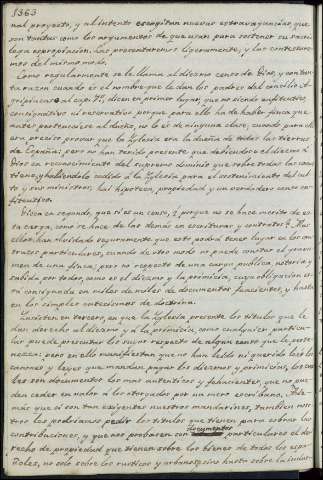 1363
nal proyecto, y al intento escogitan nuevas estravagancias, que
son tantas como los argumentos de que usan para sostener su sacri-
lega expropiacion. Las presentaremos ligeramente, y las contestare-
mos del mismo modo.
Como regularmente se le llama al diezmo censo de Dios, y con tan-
ta razon cuando es el nombre que le dan los padres del concilio
al cap. VI, dicen en primer lugar, que no siendo enfiteutico,
consignativo ni reservativo porque para ello ha de haber finca que
antes perteneciera al dueño, no lo es de ninguna clase, cuando para ello
era preciso probar que la Yglesia era la dueña de todas las tierras
de España; pero no han tenido presente que debiendose el diezmo à
Dios en reconocimiento del supremo dominio que sobre todas las cosas
tiene, y habiendolo cedido á la Yglesia para el sostenimiento del cul-
to y sus ministros, hai hipoteca, propiedad y un verdadero censo en-
fiteutico.
Dicen en segundo, que si es un censo, ? porque no se hace merito de es-
ta carga, como se hace de las demás en escrituras y contratos? Mas
ellos han olvidado seguramente que esto podrá tener lugar en los con-
tratos particulares, cuando de otro modo no puede constar el grava-
men de una finca; pero no respecto de una carga publica, notoria y
sabida por todos, como es el diezmo y la primicia, cuya obligacion es-
tá consignada en miles de miles de documentos fehacientes, y hasta
en los simples catecismos de doctrina.
Ynsisten en tercero, en que la Yglesia presente los titulos que le
dan derecho al diezmo y á la primicia, como cualquier particu-
lar puede presentar los suyos respecto de algun censo que le perte-
nezca: pero en ello manifiestan que no han leido ni querido leer los
canones y leyes que mandan pagar los diezmos y primicias, los cua-
les son documentos los mas autenticos y fehacientes, que no pue-
den ceder en valor á los otorgados por un mero escribano. Ade-
mas que si son tan exigentes nuestros mandarines, tambien noso-
tros les podriamos pedir los titulos que tienen para cobrar las
contribuciones, y que nos probasen con documentos particulares el de-
recho de propiedad que tienen sobre los bienes de todos los espa-
ñoles, no solo sobre los rusticos y urbanos, sino hasta sobre la indus-